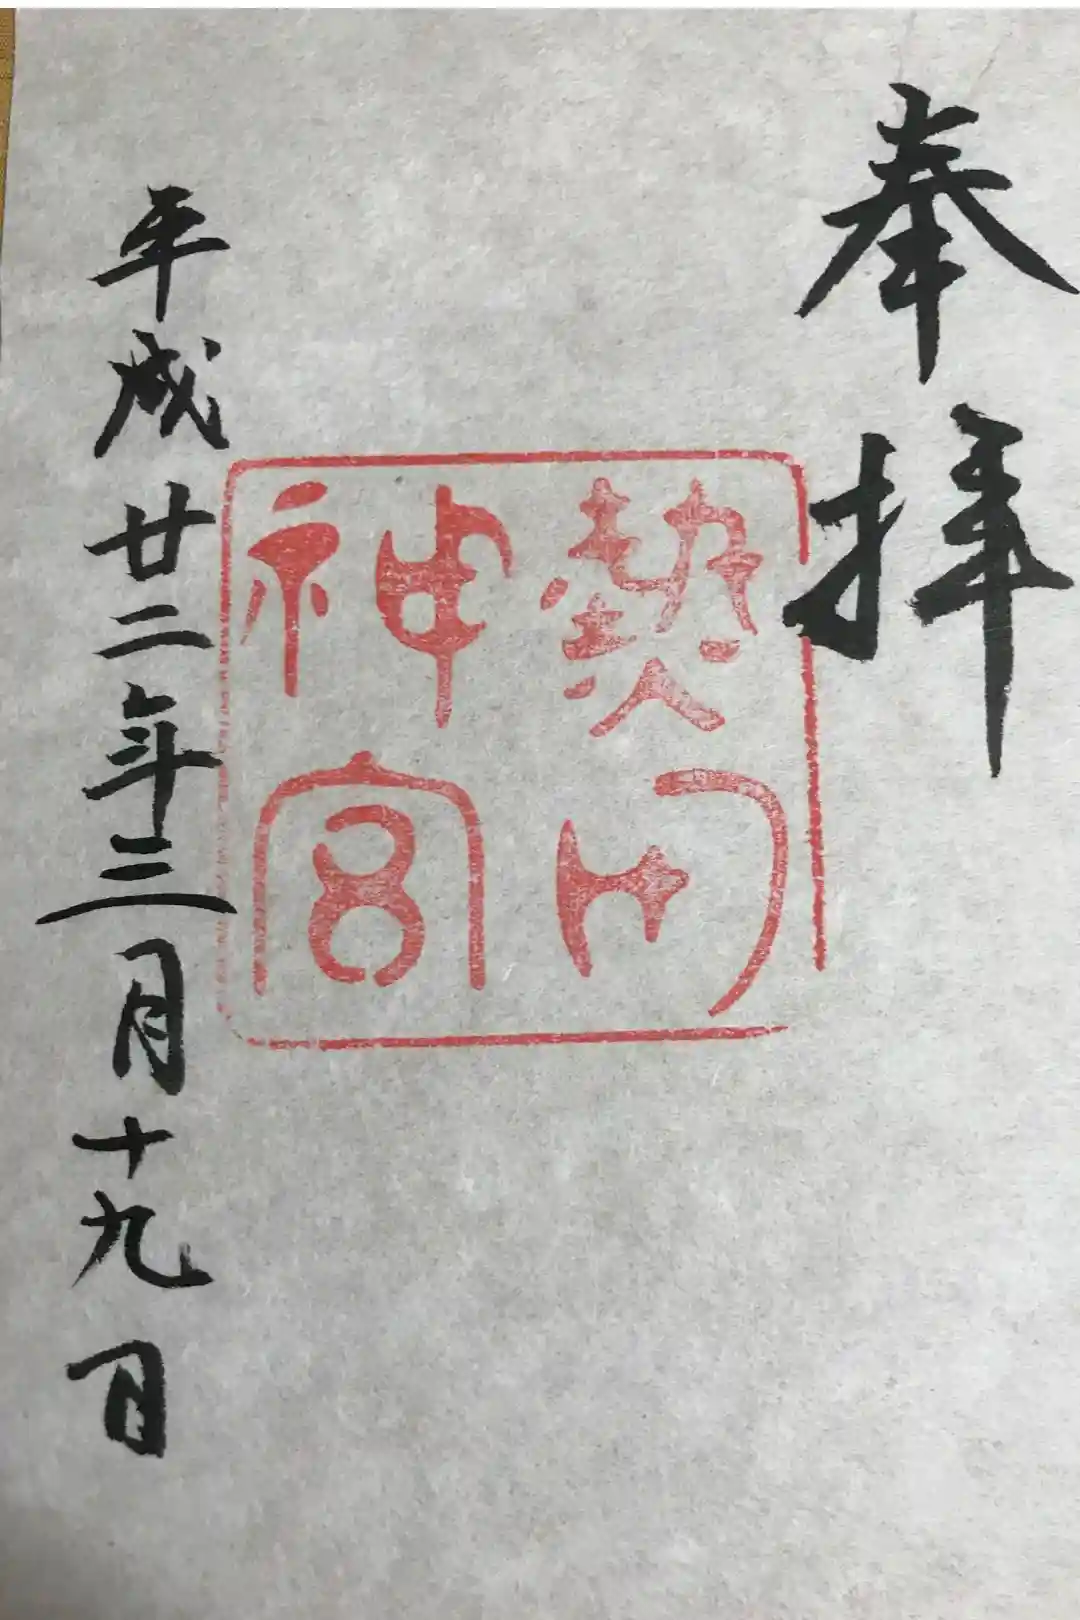 奉拝
熱田
神宮
平成廿二年三月十九日